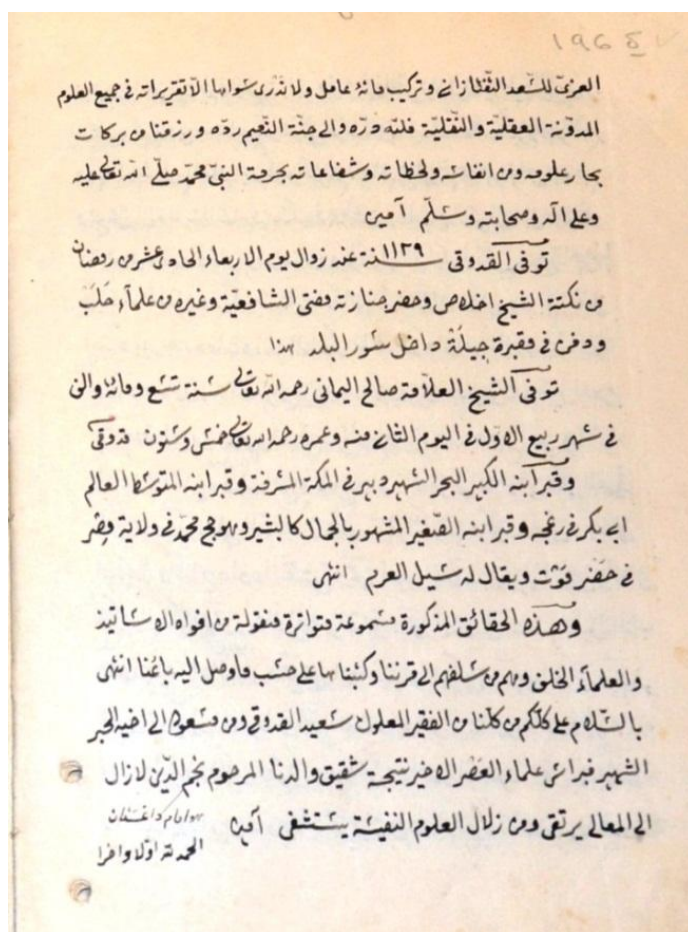 ١٩٦ ڪ
العزيّ للسّعد التّفتازانى وتركيب مائة عامل ولا نذرى سواها الّا تقريراته فى جميع العلوم
المدوّنة العقليّة والنّقليّة فلله درّه والى جنّة النّعيم ردّه ورزقنا من بركات
بحار علومه ومن انفاسه ولحظاته وشفاعاته بحرمة النبىّ محمّد صلّى الله تعالى عليه
وعلى آله وصحابته وسلّم آمين
توفى القدوقى سنة ١١٣٩ عند زوال يوم الاربعاء الحادى عشر من رمضان
من نكتة الشيخ اخلاص وحضر جنازته مفتى الشافعيّة وغيره من علمآء حَلَبَ
ودفن فى مقبرة جبيلة داخل سور البلد هذا
توفى الشيخ العلّامة صالح اليمانى رحمه الله تعالى سنة تسع ومائة والف
فى شهر ربيع الاوّل فى اليوم الثانى منه وعمره رحمه الله تعالى خمس وستون قدوقى
وقبر ابنه الكبير البحر الشهير دبير فى المكة المشرفة وقبر ابنه المتوسط العالم
ابى بكر فى رغجه وقبر ابنه الصّغير المشهور بالجمال كالبشير وهو حج محمّد فى ولاية مصر
فى حَضر مَوْت ويقال له سيل العرم انتهى
وهذه الحقائق المذكورة مسموعة متواترة منقولة من افواه الاساتيذ
والعلمآء الخلق وهم من سلفهم الى قرننا وكتبناها على حسب ما وصل اليه باعُنا انتهى
بالسّلام على كلّكم من كلّنا من الفقير المعلول سعيد القدوقى ومن مسعود الى اخيه الحبر
الشهير نبراس علماء العَصْر الاخير نتيجة شقيق والدنا المرحوم نجم الدّين لازال
الى المعالى يرتقى ومن زلال العلوم النفيسة يستشفى آمين
هو امام داغستان
الحمد لله اوّلا واخرا